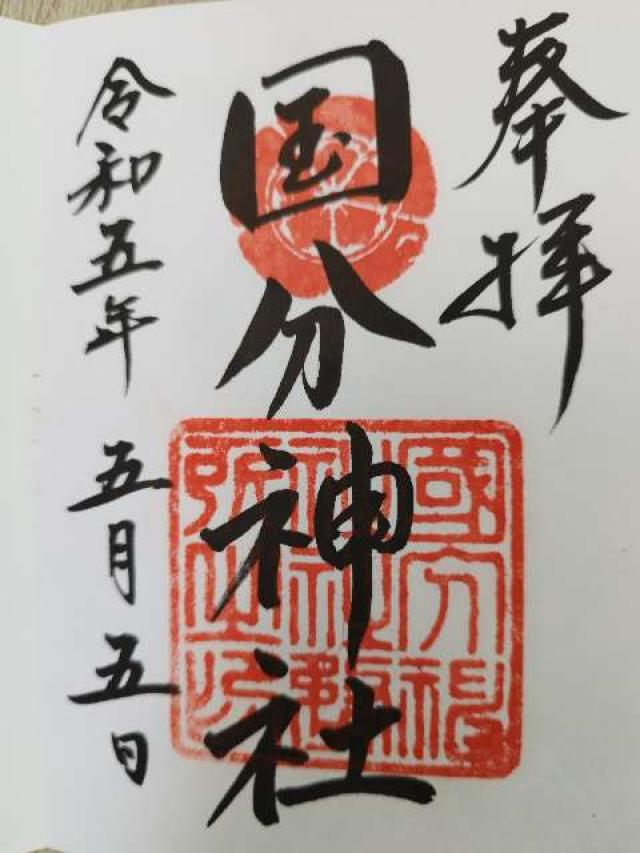 奉拝
国分神社
令和五年 五月五日